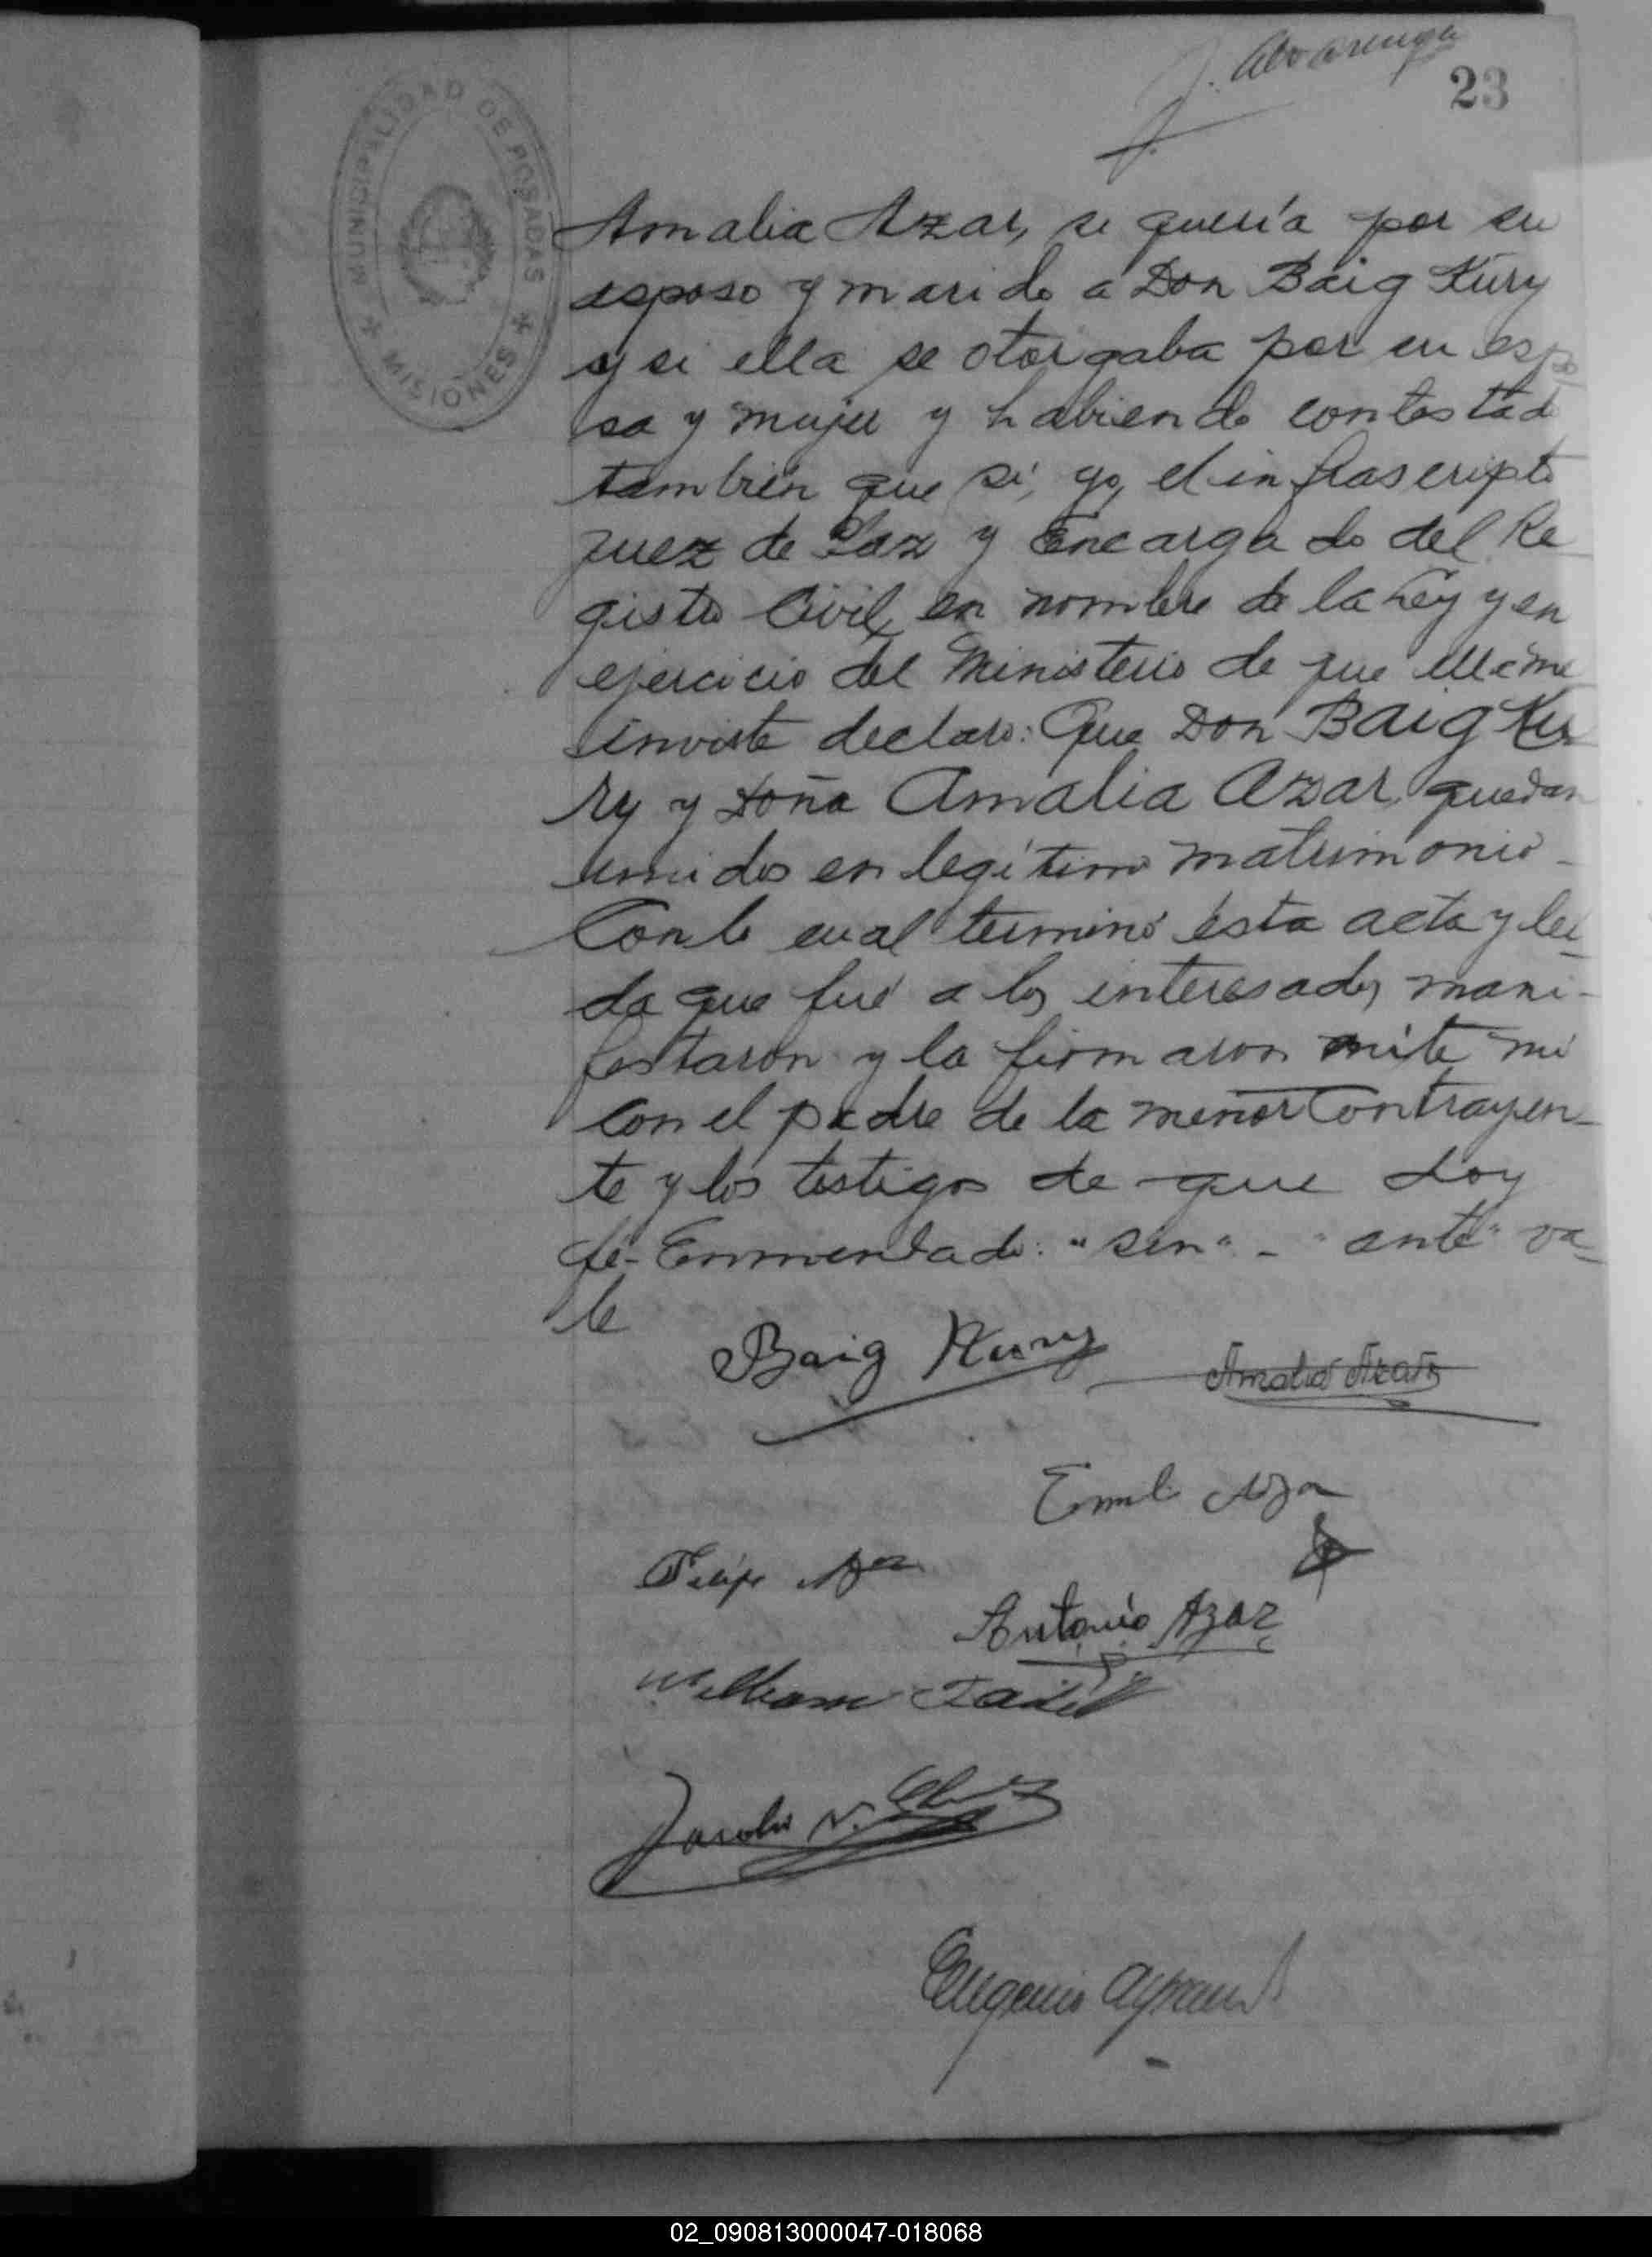 J. Alvarenga
23
MUNICIPALIDAD DE POSADAS
MISIONES
Amalia Azar, si quería por su
esposo y marido a Don Baig Kury
y si ella se otorgaba por su espo
sa y mujer y habiendo contestado
también que sí, yo, el infrascripto
Juez de Paz y Encargado del Re
gistro Civil, en nombre de la Ley y en
ejercicio del Ministerio de que ella me
inviste declaro: Que Don Baig Ku
ry y Doña Amalia Azar, quedan
unidos en legítimo matrimonio-
Con lo cual terminó ésta acta y leí-
da que fué a los interesados, mani-
festaron y la firmaron ante mi
con el padre de la menor contrayen-
te y los testigos de que doy
fé- Enmendado: "sin" - "ante" va-
le
Baig Kury
Amalia Azar
Emili Azar
Felipe Azar
Antonio Azar
William
Jacobo N.
Eugenio
02_090813000047-018068